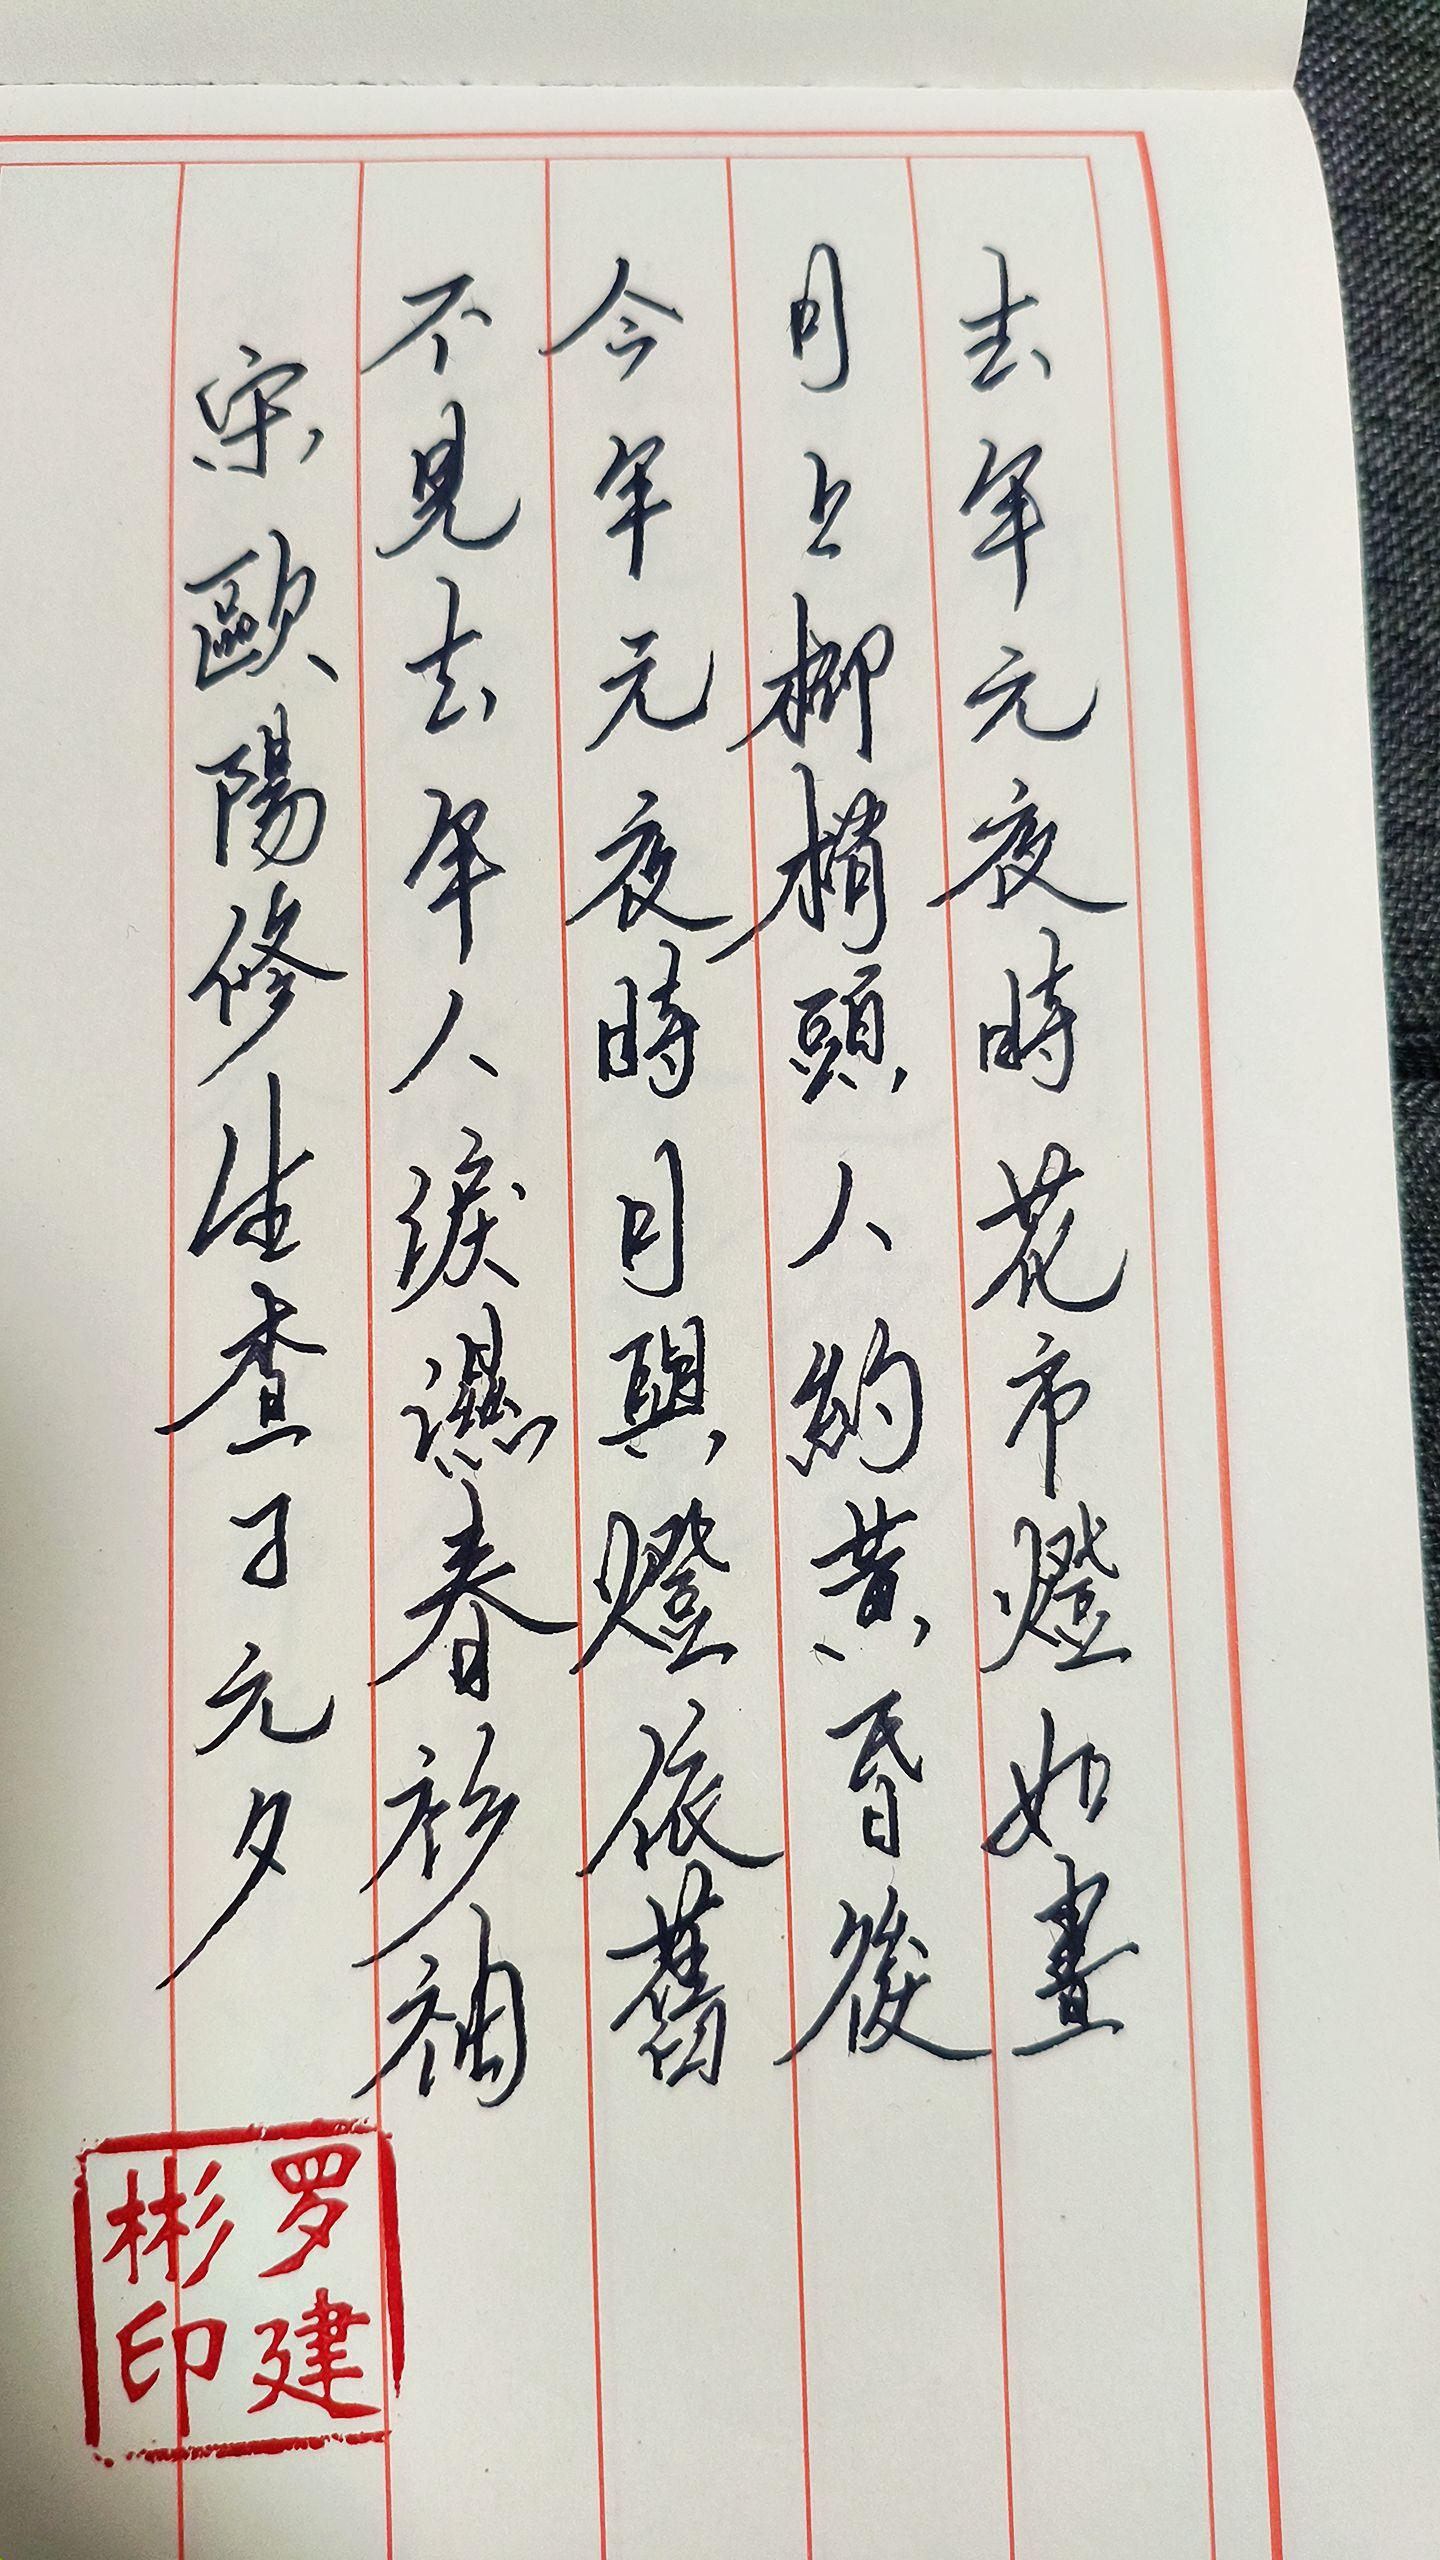 去年元夜時花市燈如晝
月上柳梢頭人約黃昏後
今年元夜時月與燈依舊
不見去年人淚濕春衫袖
宋歐陽修生查子元夕
罗建
彬印